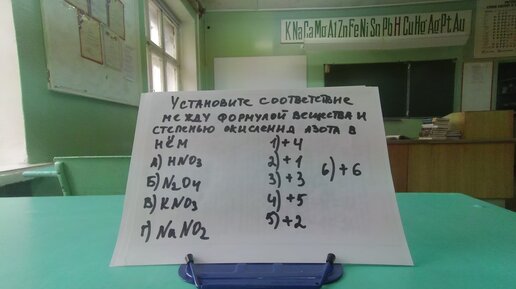 K Na Ca Mg Al Zn Fe Ni Sn Pb H Cu Hg Ag Pt Au
Установите соответствие
между формулой вещества и
степенью окисления азота в
нём
1) +4
А) HNO3
2) +1
6) +6
Б) N2O4
3) +3
В) KNO3
4) +5
Г) NaNO2
5) +2